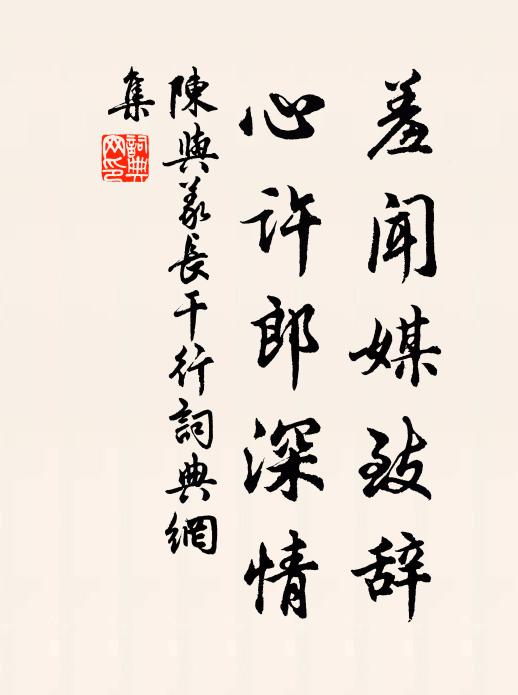 羞闻媒致辞
心许郎深情
陳與義長干行詞典網
集
詞典
网印